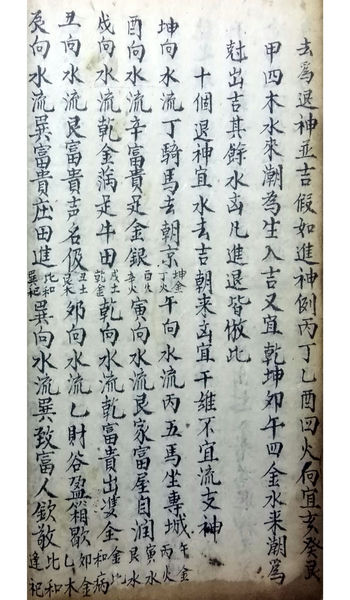 去為退神並吉假如進神例丙丁乙酉四火向宜亥癸艮
甲四木水來潮為生入吉又宜乾坤卯午四金水來潮為
尅出吉其餘水凶凡進退皆倣此
十個退神宜水去吉朝来凶宜干維不宜流支神
坤向水流丁騎馬去朝京坤金丁火午向水流丙五馬坐專城午金丙火
酉向水流辛富貴足金銀酉火辛水寅向水流艮家富屋自润寅水艮水
戌向水流乾金滿足牛田戌土乾金乾向水流乾富貴出雙全金比和病
丑向水流艮富貴声名伋丑土艮木卯向水流乙財谷盈箱歇卯金乙木
辰向水流巽富貴庄田進比和巽祀巽向水流巽致富人欽敬比和逢祀